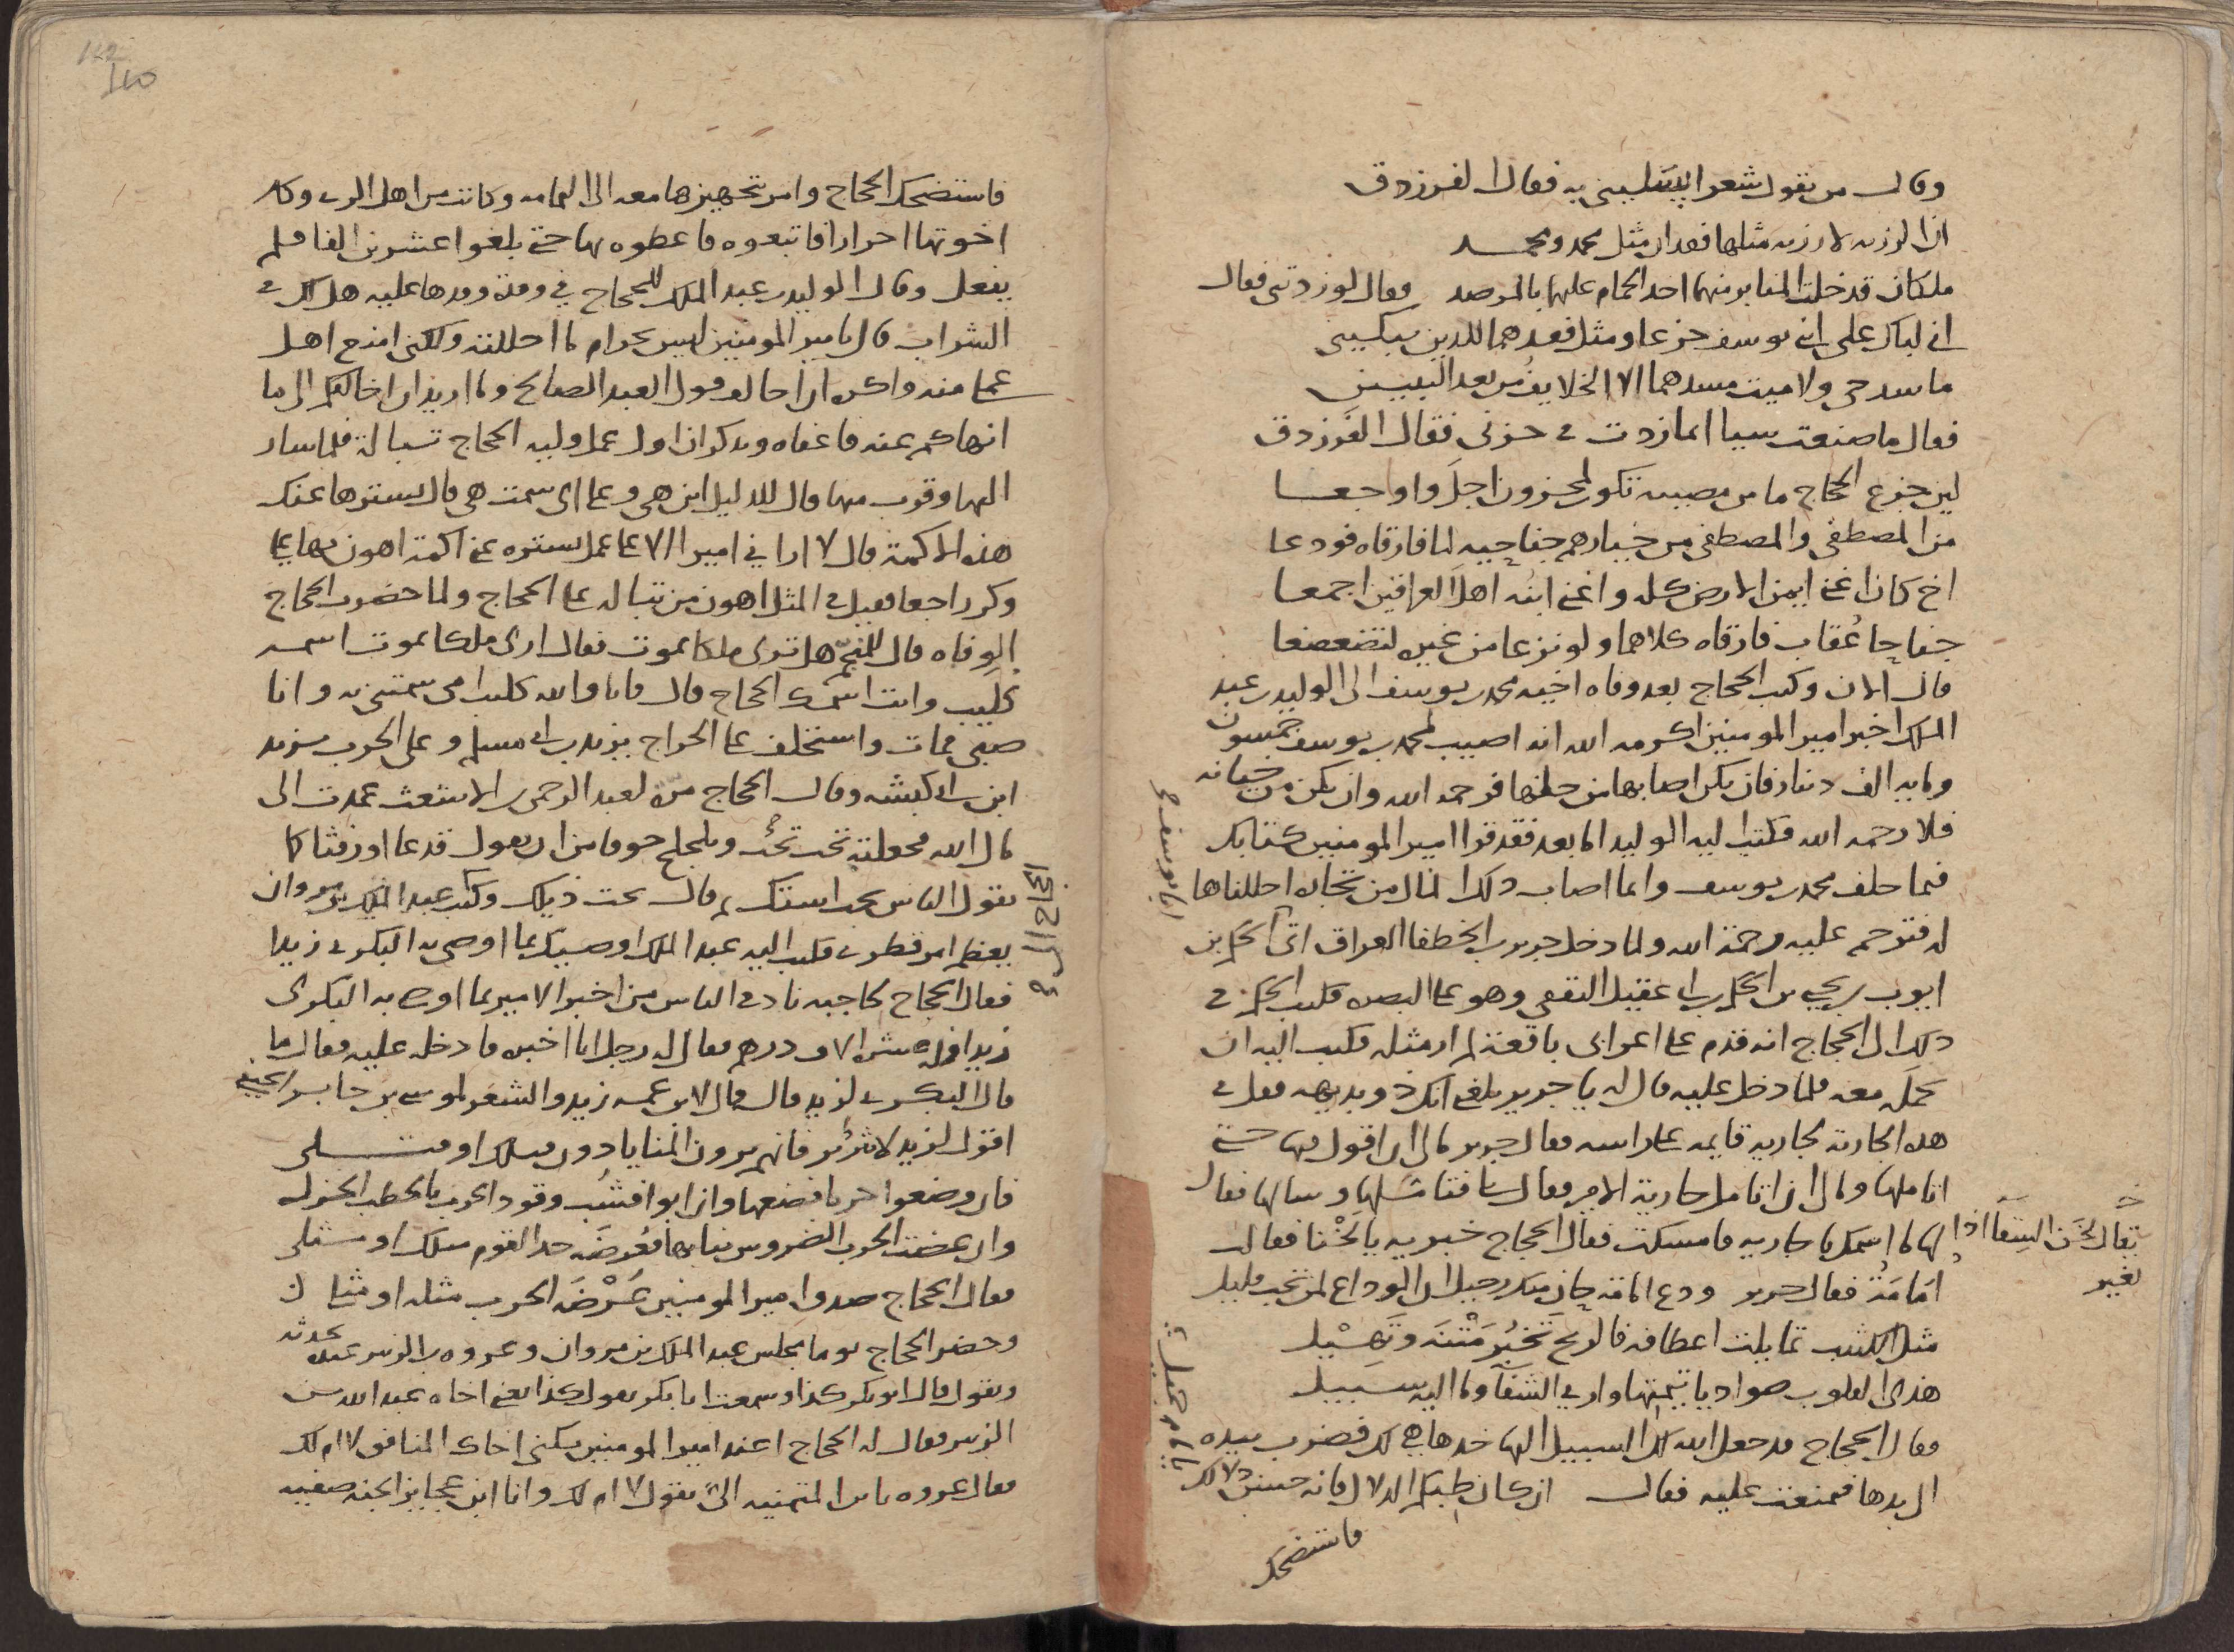 وقال من يقول شعرا يسليني به فقال الفرزدق
ان الرزية لا رزية مثلها فقدان مثل محمد ومحمد
ملكان قد خلت المنابر منهما اخذ الحمام عليهما بالمرصد فقال لو زدتني فقال
اني لباك على ابني يوسف جزعا ومثل فقدهما للدين يبكيني
ما سد حي ولا ميت مسدهما الا الخلايف من بعد النبيين
فقال ما صنعت شيا انما زدت في حزني فقال الفرزدق
لين جزع الحجاج ما من مصيبه تكون لمحزون اجل واوجعا
من المصطفى والمصطفى من خيارهم جناحيه لما فارقاه فودعا
اخ كان اغنى ايمن الارض كله واغنى ابنه اهل العراقين اجمعا
جناحا عُقاب فارقاه كلاهما ولو نزعا من غيره لتضعضعا
قال الان وكتب الحجاج بعد وفاه اخيه محمد بن يوسف الى الوليد بن عبد
الملك اخبر امير المومنين اكرمه الله انه اصيب لمحمد بن يوسف خمسون
وماية الف دينار فان يكن اصابها من حلها فرحمه الله وان يكن من خيانه
فلا رحمه الله فكتب اليه الوليد اما بعد فقد قرا امير المومنين كتابك
فيما خلف محمد بن يوسف وانما اصاب ذلك المال من تجاره احللناها
له فترحم عليه رحمة الله ولما دخل جرير بن الخطفا العراق اتى الحكم بن
ايوب بن يحيى بن الحكم بن ابي عقيل الثقفي وهو على البصره فكتب الحكم في
ذلك الى الحجاج انه قدم على اعرابي باقعة لم ار مثله فكتب اليه ان
يحمله معه فلما دخل عليه قال له يا جرير بلغني انك ذو بديهه فقل في
هذه الجاريه لجاريه قايمه على راسه فقال جرير مالي ان اقول فيها حتى
اتاملها ومالي ان اتامل جارية الامير فقال بلى فتاملها وسالها فقال
لها ما اسمك يا جاريه فامسكت فقال الحجاج خبريه يا لخنا فقالت
يقال لخن السقا اذا
تغير
امَامَةُ فقال جرير ودع امامة حان منك رحيل ان الوداع لمن تحب قليل
مثل الكثيب تمايلت اعطافه فالريح تجبُر مَتْنَه وتَهِيْل
هذي القلوب صواديا تيمتها وارى الشفآ وما اليه سبيل
فقال الحجاج قد جعل الله لك السبيل اليها خذها هي لك فضرب بيده
الى يدها فتمنعت عليه فقال ان كان طبكم الدلال فانه حسن دلالك
يا ام جميل
فاستضحك
فاستضحك الحجاج وامر بتجهيزها معه الى اليمامه وكانت من اهل الري وكان
اخوتها احرارا فاتبعوه فاعطوه بها حتى بلغوا عشرين الفا فلم
يفعل وقال الوليد بن عبد الملك للحجاج في وفدة وفدها عليه هل لك في
الشراب قال يا امير المومنين ليس بحرام ما احللته ولكني امنع اهل
عملي منه واكره ان اخالف قول العبد الصالح وما اريد ان اخالفكم الى ما
انهاكم عنه فاعفاه ويذكر ان اول عمل وليه الحجاج تبالة فلما سار
اليها وقرب منها قال للدليل اين هي وعلى اي سمت هي قال يسترها عنك
هذه الاكمة قال لا اراني اميرا الا على عمل يستره عني اكمة اهون بها علي
وكر راجعا فقيل في المثل اهون من تباله على الحجاج ولما حضرت الحجاج
الوفاه قال للمنجم هل ترى ملكا يموت فقال ارى ملكا يموت اسمه
كُلَيب وانت اسمك الحجاج قال فانا والله كليب امي سمتني به وانا
صبي فمات واستخلف على الخراج يزيد بن ابي مسلم وعلى الحرب يزيد
ابن ابي كبشه وقال الحجاج مرّة لعبد الرحمن بن الاشعث عمدت الى
مال الله فجعلته تحت تحتُ وتلجلج خوفا من ان يقول قذعا او رفثا كما
يقول الناس تحت استك ثم قال تحت ذيلك وكتب عبد الملك بن مروان
يعظم امر قطري فكتب اليه عبد الملك اوصيك بما اوصى به البكري زيدا
فقال الحجاج لحاجبه نادي في الناس من اخبر الامير بما اوصى به البكري
زيدا فله عشرة الاف درهم فقال له رجل انا اخبره فادخله عليه فقال ما
قال البكري لزيد قال قال لابن عمه زيد والشعر لموسى بن جابر الحنفي
اقول لزيد لا تُثرثر فانهم يرون المنايا دون قتلك او قتلي
فان وضعوا حربا فضعها وان ابوا فشُب وقود الحرب بالحطب الجزل
وان عضت الحرب الضروس بنابها فعُرضَة حد القوم مثلك او مثلي
فقال الحجاج صدق امير المومنين عُرْضَة الحرب مثله او مثلي
وحضر الحجاج يوما مجلس عبد الملك بن مروان وعروه بن الزبير عنده يحدثه
ويقول قال ابو بكر كذا وسمعت ابا بكر يقول كذا يعني اخاه عبد الله بن
الزبير فقال له الحجاج اعند امير المومنين تكني اخاك المنافق لا ام لك
فقال عروه يا ابن المتمنيه الي تقول لا ام لك وانا ابن عجايز الجنة صفيه